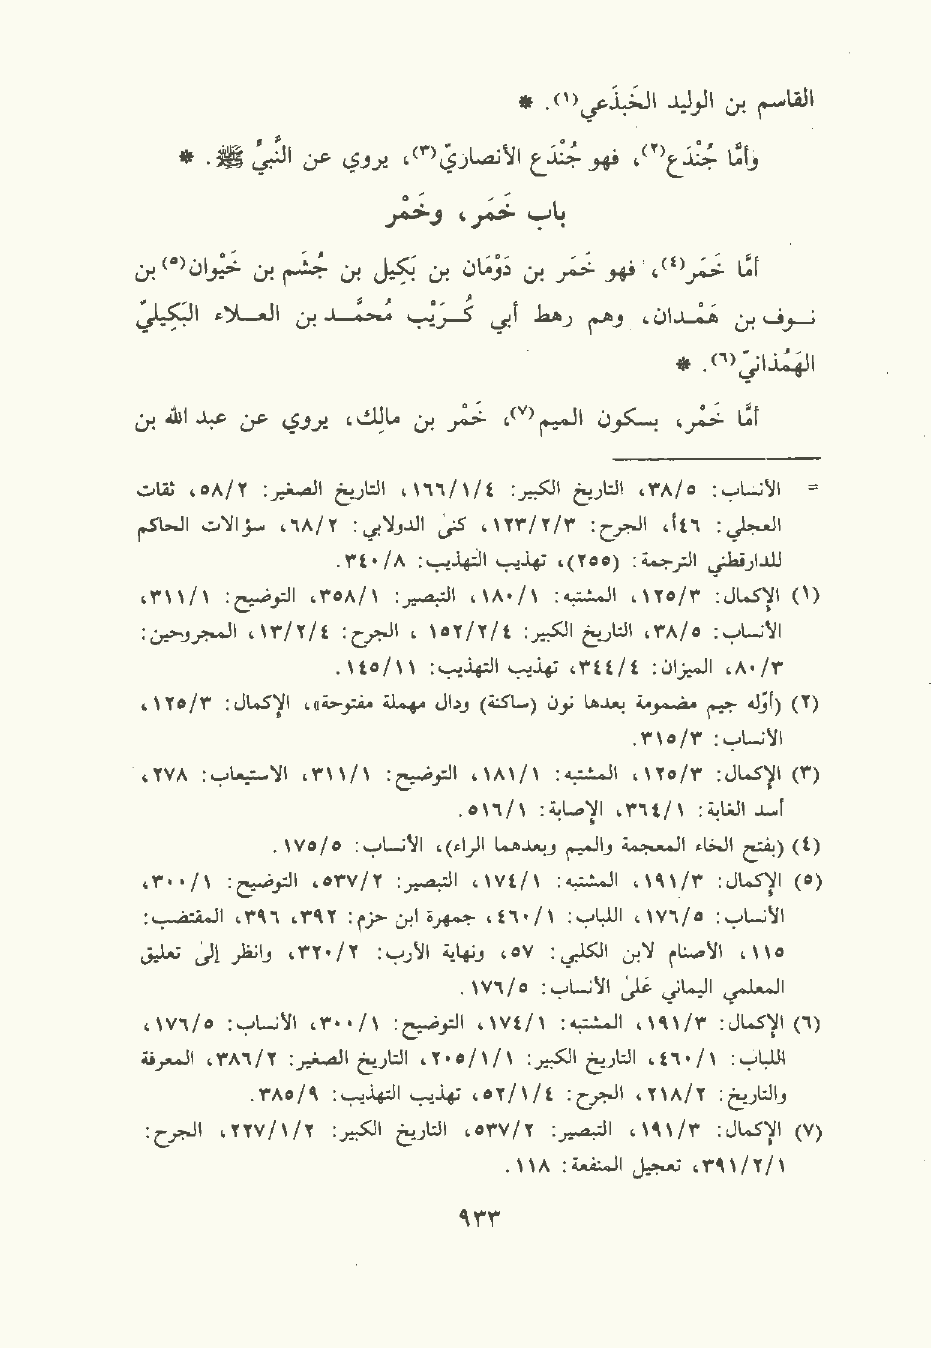 القاسم بن الوليد الخَبذَعي(١). *
وأمَّا جُنْدَع(٢)، فهو جُنْدَع الأنصاريّ(٣)، يروي عن النَّبيُّ ﷺ. *
باب خَمَر، وخَمْر
أمَّا خَمَر(٤)، فهو خَمَر بن دَوْمَان بن بَكِيل بن جُشَم بن خَيْوان(٥) بن
نـوف بن هَمْـدان، وهم رهط أبي كُـرَيْب مُحمَّـد بن العـلاء البَكِيليّ
الهَمْدَانيّ(٦). *
أمَّا خَمْر، بسكون الميم(٧)، خَمْر بن مالِك، يروي عن عبد الله بن
= الأنساب: ٣٨/٥، التاريخ الكبير: ١٦٦/١/٤، التاريخ الصغير: ٥٨/٢، ثقات
العجلي: ٤٦أ، الجرح: ١٢٣/٢/٣، كنى الدولابي: ٦٨/٢، سؤالات الحاكم
للدارقطني الترجمة: (٢٥٥)، تهذيب التهذيب: ٣٤٠/٨.
(١) الإكمال: ١٢٥/٣، المشتبه: ١٨٠/١، التبصير: ٣٥٨/١، التوضيح: ٣١١/١،
الأنساب: ٣٨/٥، التاريخ الكبير: ١٥٢/٢/٤ ، الجرح: ١٣/٢/٤، المجروحين:
٨٠/٣، الميزان: ٣٤٤/٤، تهذيب التهذيب: ١٤٥/١١.
(٢) (أوّله جيم مضمومة بعدها نون (ساكنة) ودال مهملة مفتوحة»، الإكمال: ١٢٥/٣،
الأنساب: ٣١٥/٣.
(٣) الإكمال: ١٢٥/٣، المشتبه: ١٨١/١، التوضيح: ٣١١/١، الاستيعاب: ٢٧٨،
أسد الغابة: ٣٦٤/١، الإصابة: ٥١٦/١.
(٤) (بفتح الخاء المعجمة والميم وبعدهما الراء)، الأنساب: ١٧٥/٥.
(٥) الإكمال: ١٩١/٣، المشتبه: ١٧٤/١، التبصير: ٥٣٧/٢، التوضيح: ٣٠٠/١،
الأنساب: ١٧٦/٥، اللباب: ٤٦٠/١، جمهرة ابن حزم: ٣٩٢، ٣٩٦، المقتضب:
١١٥، الأصنام لابن الكلبي: ٥٧، ونهاية الأرب: ٣٢٠/٢، وانظر إلى تعليق
المعلمي اليماني على الأنساب: ١٧٦/٥.
(٦) الإكمال: ١٩١/٣، المشتبه: ١٧٤/١، التوضيح: ٣٠٠/١، الأنساب: ١٧٦/٥،
اللباب: ٤٦٠/١، التاريخ الكبير: ٢٠٥/١/١، التاريخ الصغير: ٣٨٦/٢، المعرفة
والتاريخ: ٢١٨/٢، الجرح: ٥٢/١/٤، تهذيب التهذيب: ٣٨٥/٩.
(٧) الإكمال: ١٩١/٣، التبصير: ٥٣٧/٢، التاريخ الكبير: ٢٢٧/١/٢، الجرح:
٣٩١/٢/١، تعجيل المنفعة: ١١٨.
٩٣٣